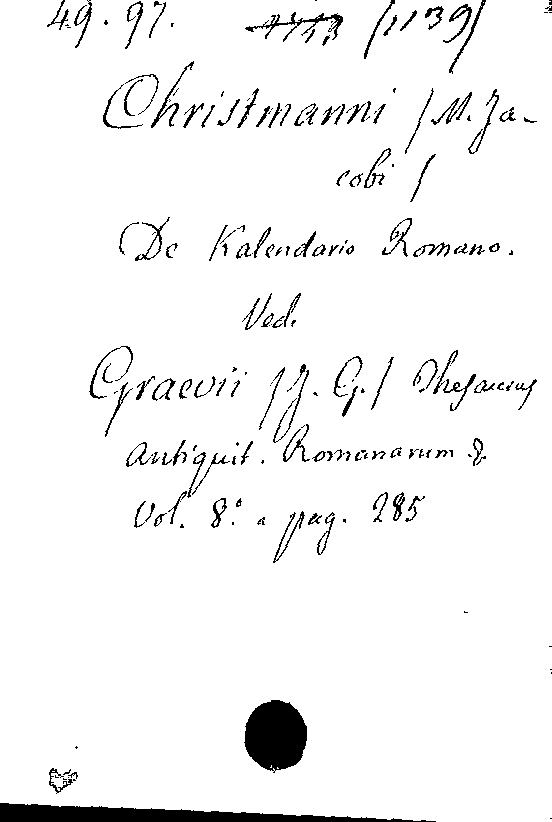 49.97. (1139)
Christmanni (M. Ja-
cobi)
De Kalendario Romano.
Ved.
Graevii (J. G.) Thesaurus
Antiquit. Romanarum &
Vol. 8.° a pag. 285